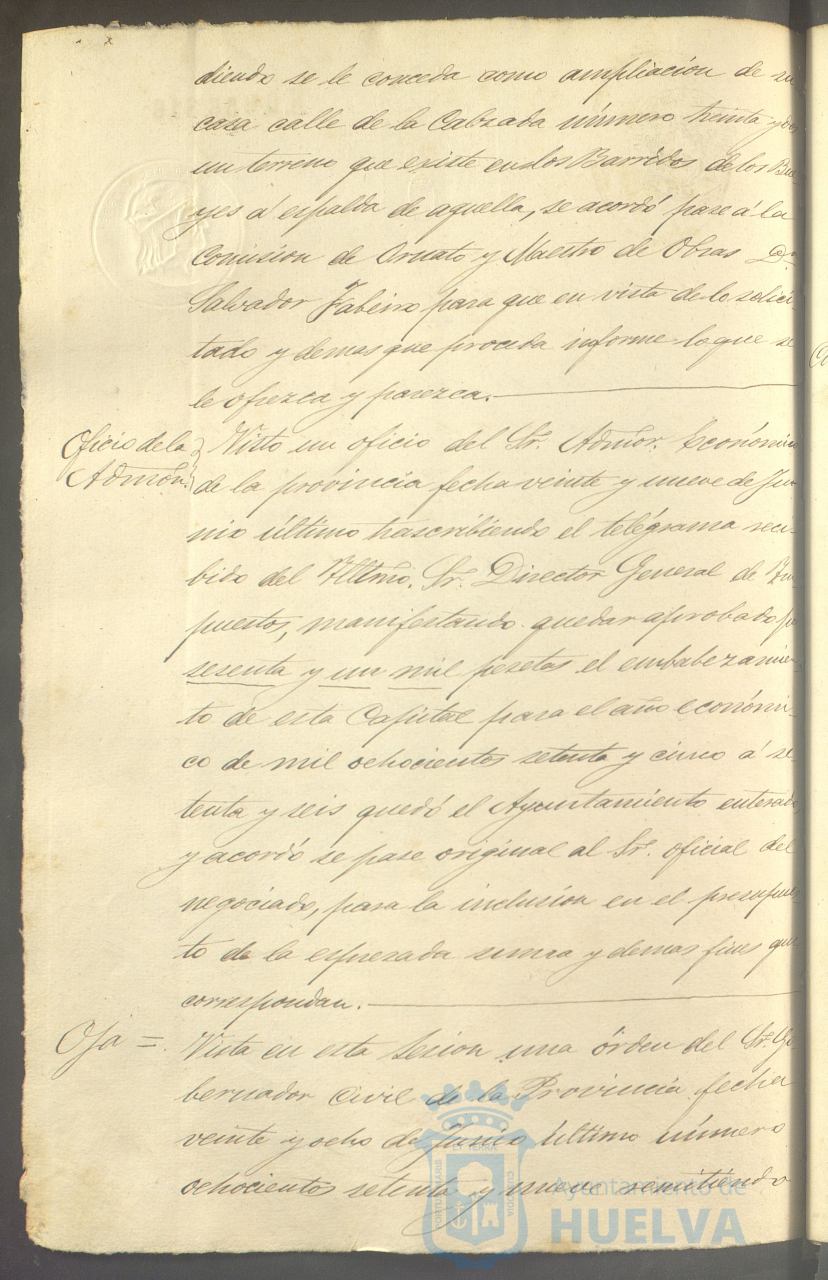 diendo se le conceda como ampliación de su
casa calle de la Calzada número treinta y dos
un terreno que existe en los Barridos de los Bue
yes á espalda de aquella, se acordó pase á la
Comision de Ornato y Maestro de Obras Dn.
Salvador Fabeiro para que en vista de lo solici-
tado y demas que proceda informe lo que se
le ofrezca y parezca.
Oficio de la Admon. Visto un oficio del Sr. Admor. Económico
de la provincia fecha veinte y nueve de Ju
nio último trascribiendo el telégrama reci-
bido del Illtmo. Sr. Director General de Im
puestos, manifestando quedar aprobado por
sesenta y un mil pesetas el embabezamien-
to de esta Capital para el año económi-
co de mil ochocientos setenta y cinco á se-
tenta y seis quedó el Ayuntamiento enterado
y acordó se pase original al Sr. oficial del
negociado, para la inclusion en el presupues
to de la espresada suma y demas fines que
correspondan.
Vista en esta Sesion una órden del Sr. Go
bernador Civil de la Provincia fecha
veinte y ocho de Junio último número
ochocientos setenta y nueve remitiendo
Ayuntamiento de
HUELVA